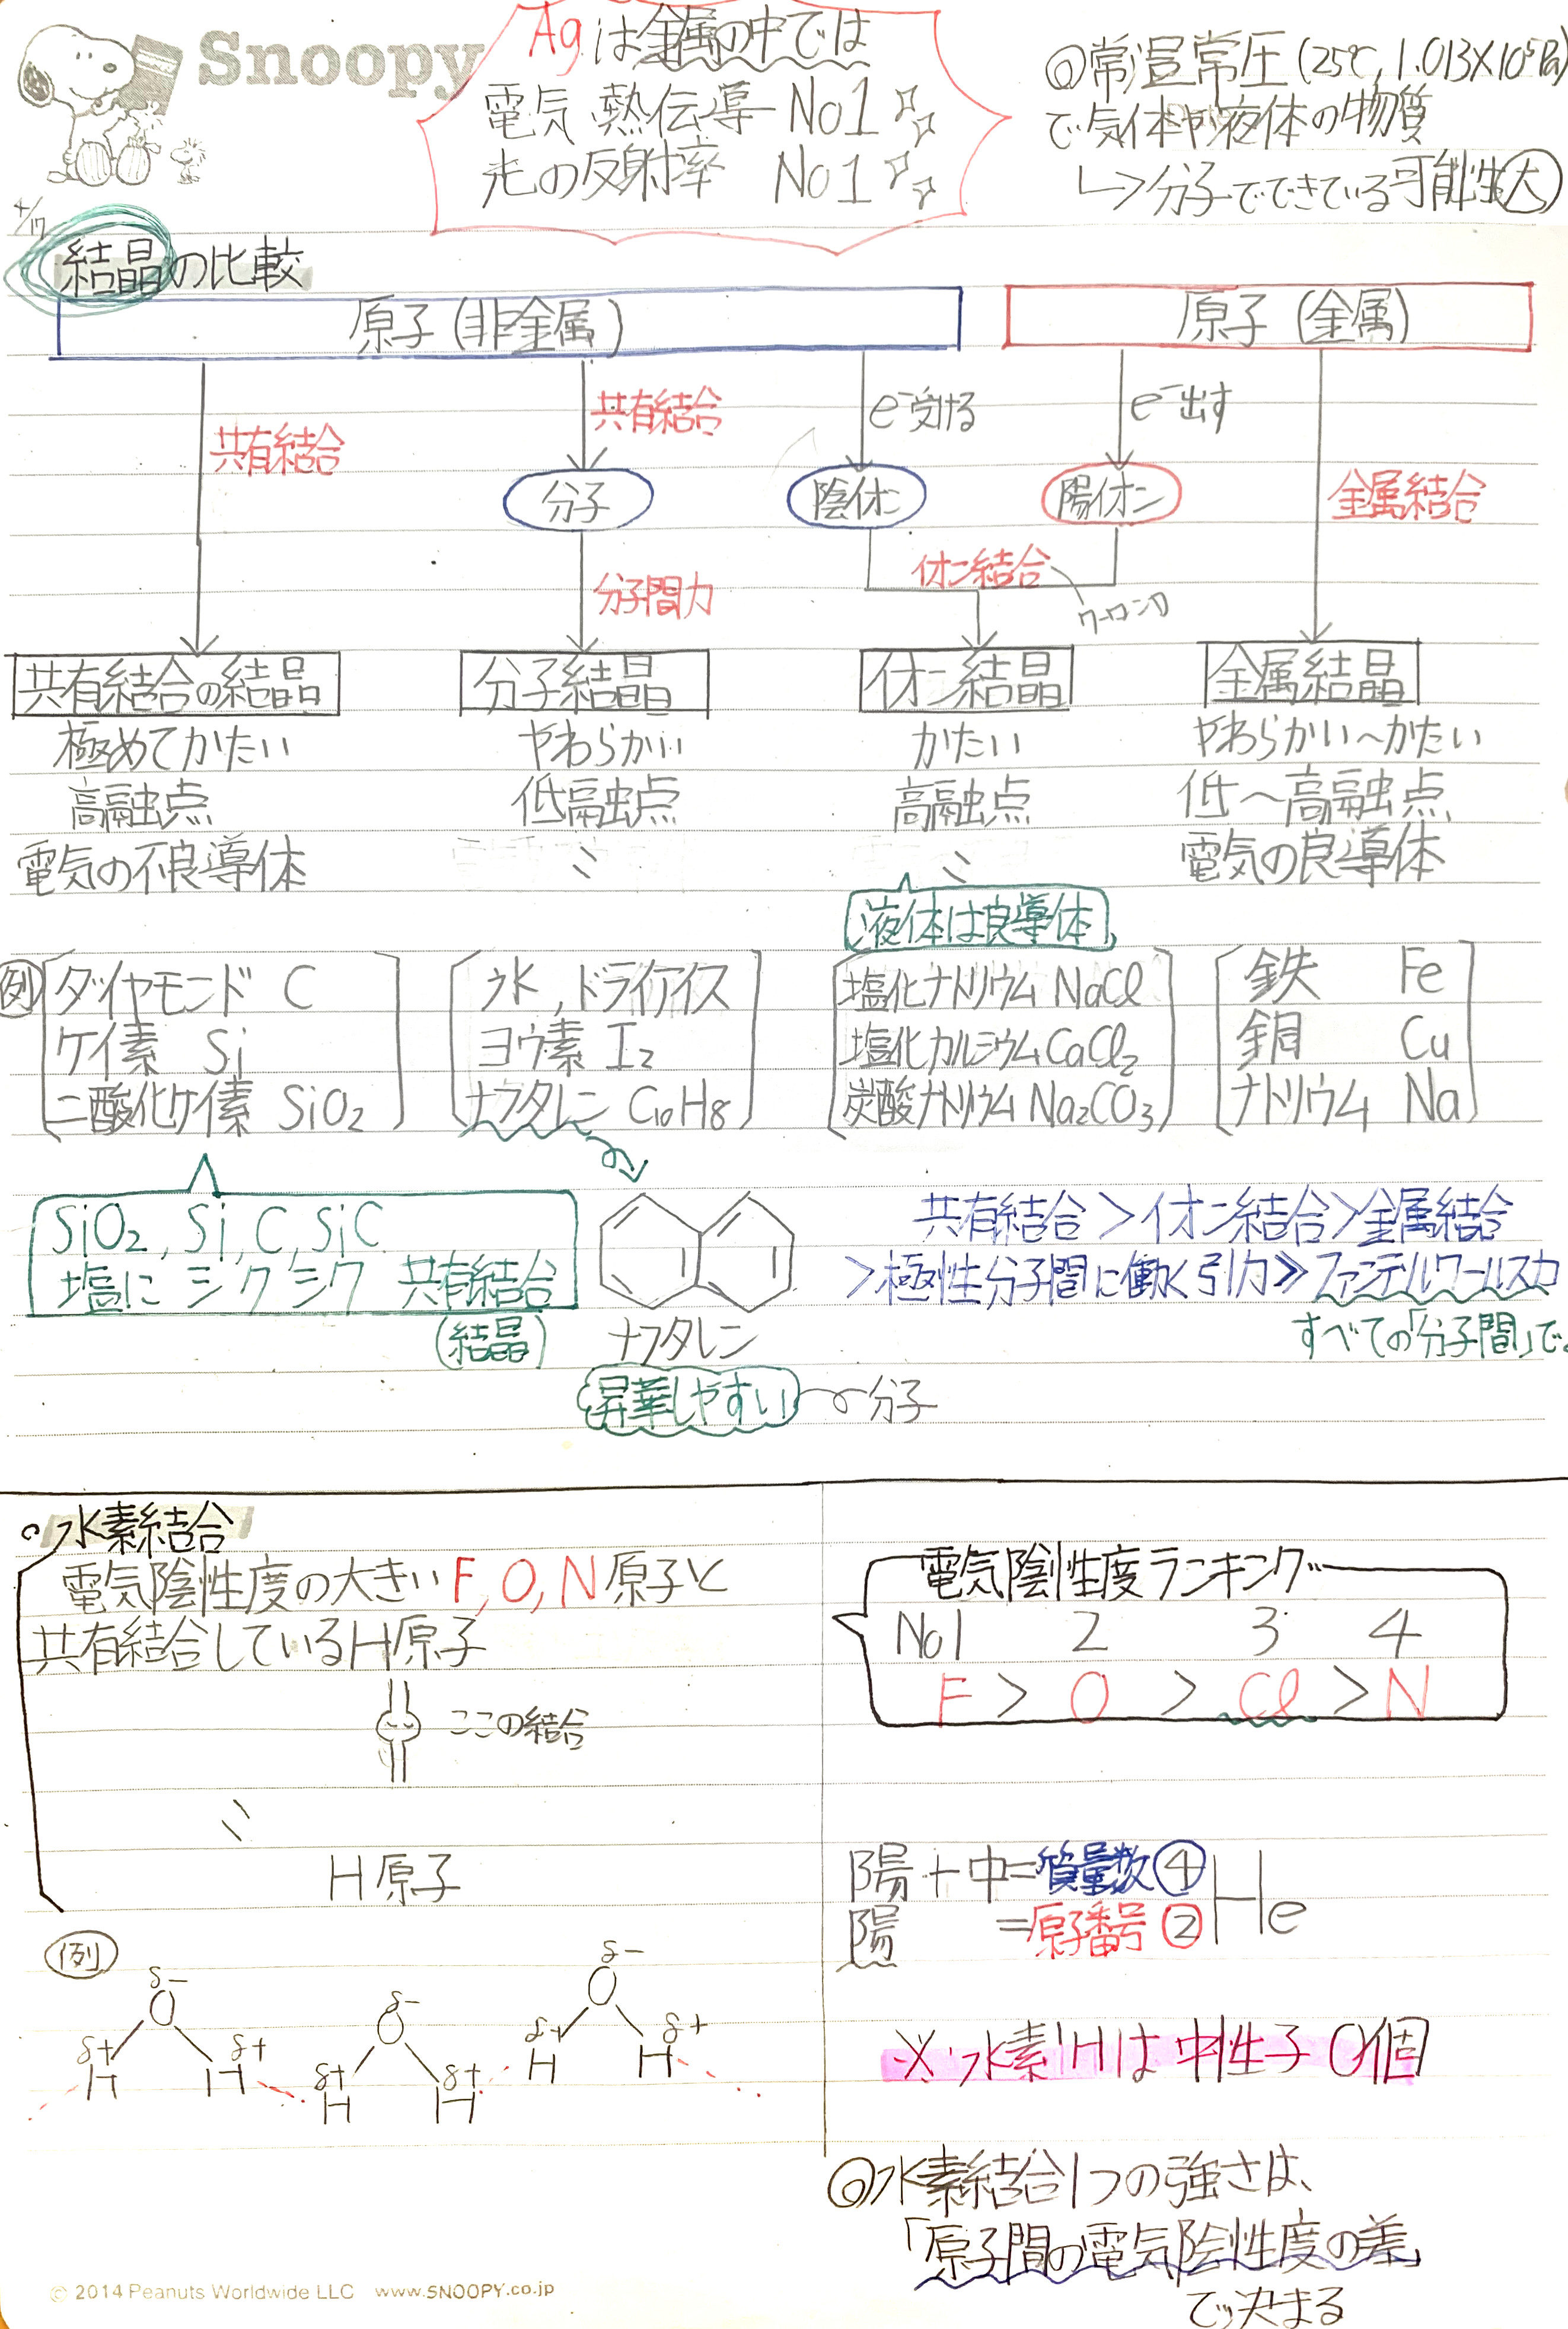 Snoopy
Agは金属の中では
電気 熱伝導 No1
光の反射率 No1
◎常温常圧(25℃, 1.013×10⁵Pa)
で気体や液体の物質
↳分子でできている可能性大
4/17
結晶の比較
原子(非金属)
原子(金属)
共有結合
共有結合
e⁻受ける
e⁻出す
金属結合
分子
陰イオン
陽イオン
分子間力
イオン結合
クーロン力
共有結合の結晶
分子結晶
イオン結晶
金属結晶
極めてかたい
やわらかい
かたい
やわらかい〜かたい
高融点
低融点
高融点
低〜高融点
電気の不良導体
〃
〃
電気の良導体
液体は良導体
例
ダイヤモンド C
ケイ素 Si
二酸化ケイ素 SiO₂
氷,ドライアイス
ヨウ素 I₂
ナフタレン C₁₀H₈
塩化ナトリウム NaCl
塩化カルシウム CaCl₂
炭酸ナトリウム Na₂CO₃
鉄 Fe
銅 Cu
ナトリウム Na
SiO₂, Si, C, SiC
塩に シクシク 共有結合
(結晶)
ナフタレン
昇華しやすい
分子
共有結合>イオン結合>金属結合
>極性分子間に働く引力≫ファンデルワールス力
すべての「分子間」で
水素結合
電気陰性度の大きいF,O,N原子と
共有結合しているH原子
ここの結合
〃
H原子
電気陰性度ランキング
No1 2 3 4
F > O > Cl > N
陽+中=質量数④ He
陽 =原子番号②
例
δ− O δ+ H δ+ H
δ− O δ+ H δ+ H
δ− O δ+ H δ+ H
※水素Hは中性子0個
◎水素結合1つの強さは、
「原子間の電気陰性度の差」
で決まる
© 2014 Peanuts Worldwide LLC www.SNOOPY.co.jp